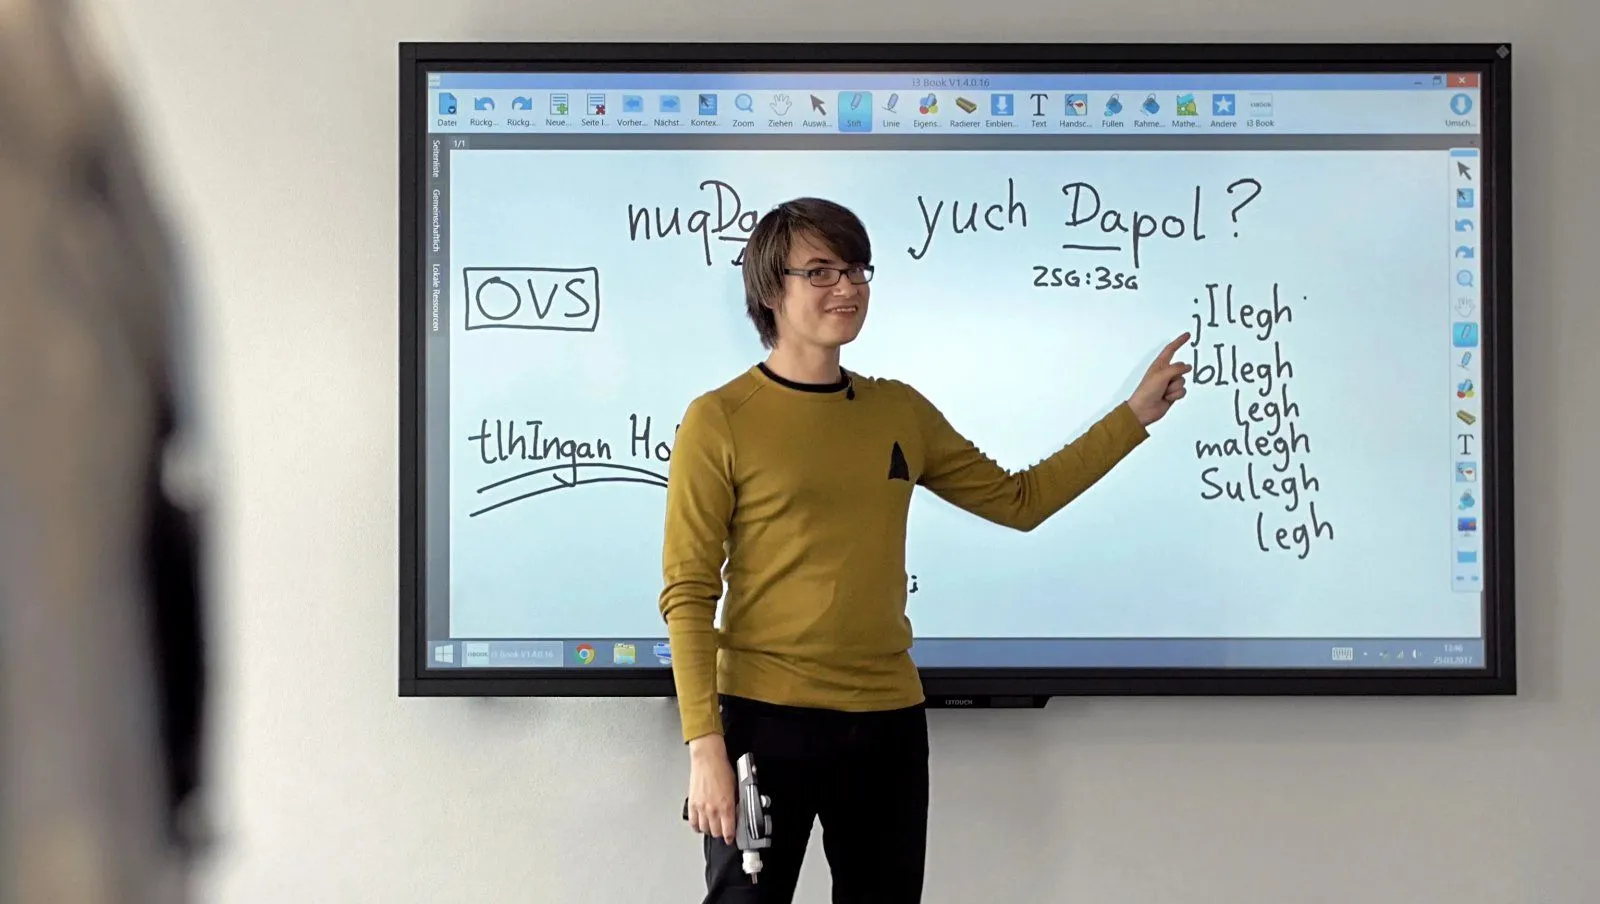 i3 Book V1.4.0.16
Datei Rückg... Rückg... Neue... Seite l... Vorher... Nächst... Kontex... Zoom Ziehen Auswä... Stift Linie Eigens... Radierer Einblen... Text Handsc... Füllen Rahme... Mathe... Andere i3 Book Umsch...
1/1
Seitenliste
Gemeinschaftlich
Lokale Ressourcen
nuqDa yuch Dapol?
2SG:3SG
OVS
jIlegh
bIlegh
legh
malegh
Sulegh
legh
tlhIngan Ho
i3BOOK i3 Book V1.4.0.16
13:46
25.03.2017
i3TOUCH